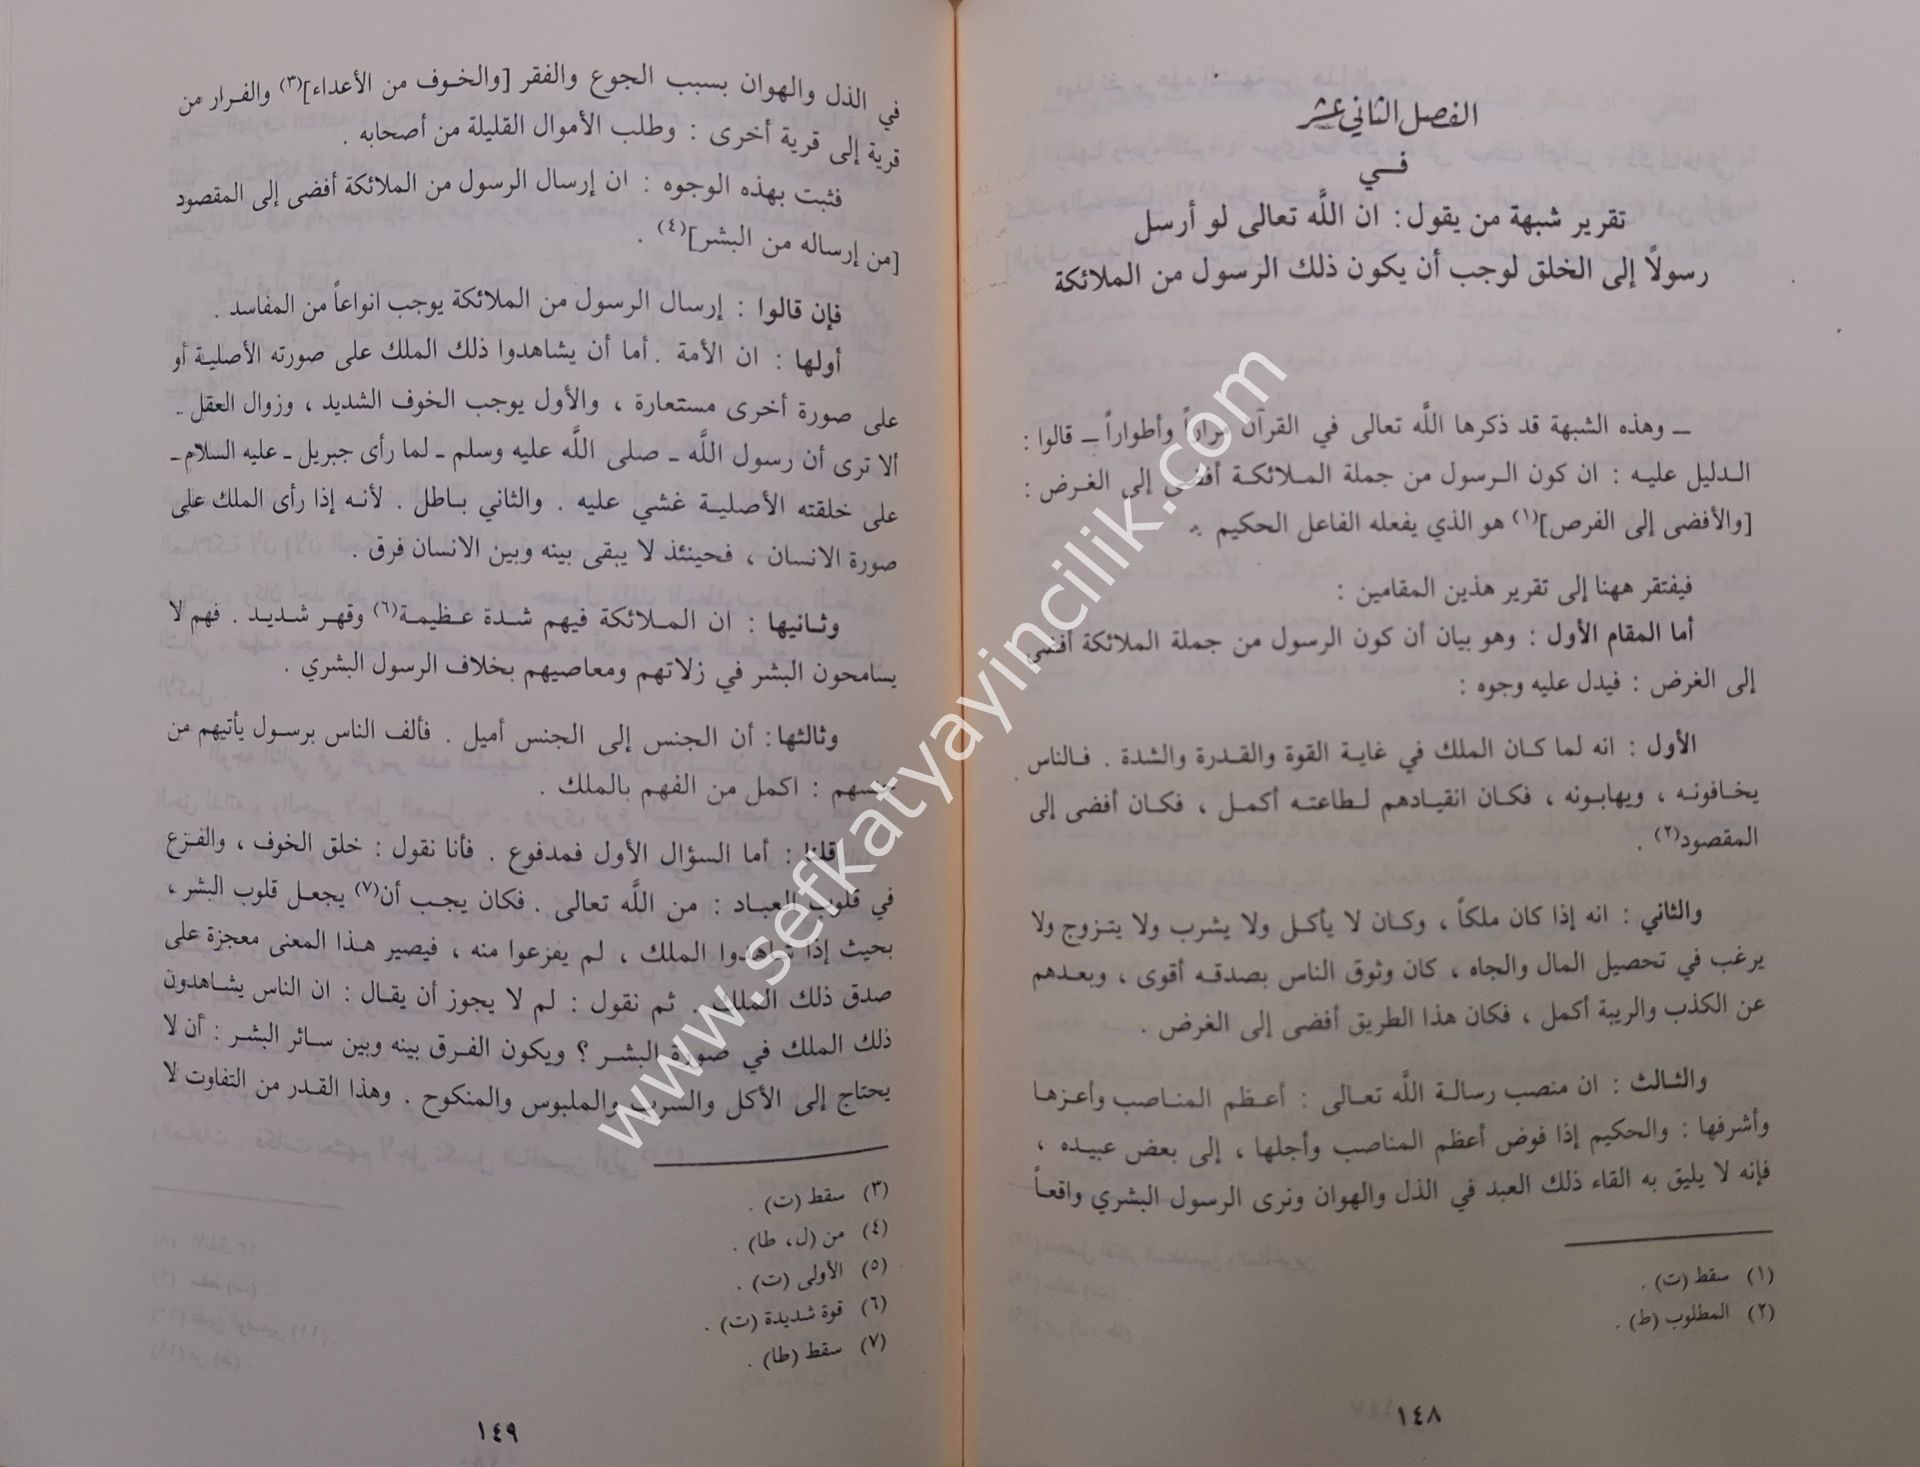 الفصل الثاني عشر
في
تقرير شبهة من يقول: ان اللَّه تعالى لو أرسل
رسولاً إلى الخلق لوجب أن يكون ذلك الرسول من الملائكة
ـ وهذه الشبهة قد ذكرها اللَّه تعالى في القرآن مراراً وأطواراً ـ قالوا :
الدليل عليه : ان كون الرسول من جملة الملائكة أفضى إلى الغرض :
[والأفضى إلى الفرص](١) هو الذي يفعله الفاعل الحكيم .
فيفتقر ههنا إلى تقرير هذين المقامين :
أما المقام الأول : وهو بيان أن كون الرسول من جملة الملائكة أفضى
إلى الغرض : فيدل عليه وجوه :
الأول : انه لما كان الملك في غاية القوة والقدرة والشدة . فالناس
يخافونه ، ويهابونه ، فكان انقيادهم لطاعته أكمل ، فكان أفضى إلى
المقصود(٢) .
والثاني : انه إذا كان ملكاً ، وكان لا يأكل ولا يشرب ولا يتزوج ولا
يرغب في تحصيل المال والجاه ، كان وثوق الناس بصدقه أقوى ، وبعدهم
عن الكذب والريبة أكمل ، فكان هذا الطريق أفضى إلى الغرض .
والثالث : ان منصب رسالة اللَّه تعالى : أعظم المناصب وأعزها
وأشرفها : والحكيم إذا فوض أعظم المناصب وأجلها ، إلى بعض عبيده ،
فإنه لا يليق به القاء ذلك العبد في الذل والهوان ونرى الرسول البشري واقعاً
(١) سقط (ت) .
(٢) المطلوب (ط) .
١٤٨
في الذل والهوان بسبب الجوع والفقر [والخوف من الأعداء](٣) والفرار من
قرية إلى قرية أخرى : وطلب الأموال القليلة من أصحابه .
فثبت بهذه الوجوه : ان إرسال الرسول من الملائكة أفضى إلى المقصود
[من إرساله من البشر](٤) .
فإن قالوا : إرسال الرسول من الملائكة يوجب انواعاً من المفاسد .
أولها : ان الأمة . أما أن يشاهدوا ذلك الملك على صورته الأصلية أو
على صورة أخرى مستعارة ، والأول يوجب الخوف الشديد ، وزوال العقل .
ألا ترى أن رسول اللَّه ـ صلى اللَّه عليه وسلم ـ لما رأى جبريل ـ عليه السلام ـ
على خلقته الأصلية غشي عليه . والثاني باطل . لأنه إذا رأى الملك على
صورة الانسان ، فحينئذ لا يبقى بينه وبين الانسان فرق .
وثانيها : ان الملائكة فيهم شدة عظيمة(٦) وقهر شديد . فهم لا
يسامحون البشر في زلاتهم ومعاصيهم بخلاف الرسول البشري .
وثالثها : أن الجنس إلى الجنس أميل . فألف الناس برسول يأتيهم من
جنسهم : اكمل من الفهم بالملك .
قلنا : أما السؤال الأول فمدفوع . فأنا نقول : خلق الخوف ، والفزع
في قلوب العباد : من اللَّه تعالى . فكان يجب أن(٧) يجعل قلوب البشر ،
بحيث إذا شاهدوا الملك ، لم يفزعوا منه ، فيصير هذا المعنى معجزة على
صدق ذلك الملك . ثم نقول : لم لا يجوز أن يقال : ان الناس يشاهدون
ذلك الملك في صورة البشر ؟ ويكون الفرق بينه وبين سائر البشر : أن لا
يحتاج إلى الأكل والشرب والملبوس والمنكوح . وهذا القدر من التفاوت لا
(٣) سقط (ت) .
(٤) من (ل، طا) .
(٥) الأولى (ت) .
(٦) قوة شديدة (ت) .
(٧) سقط (طا) .
١٤٩
www.sefkatyayincilik.com